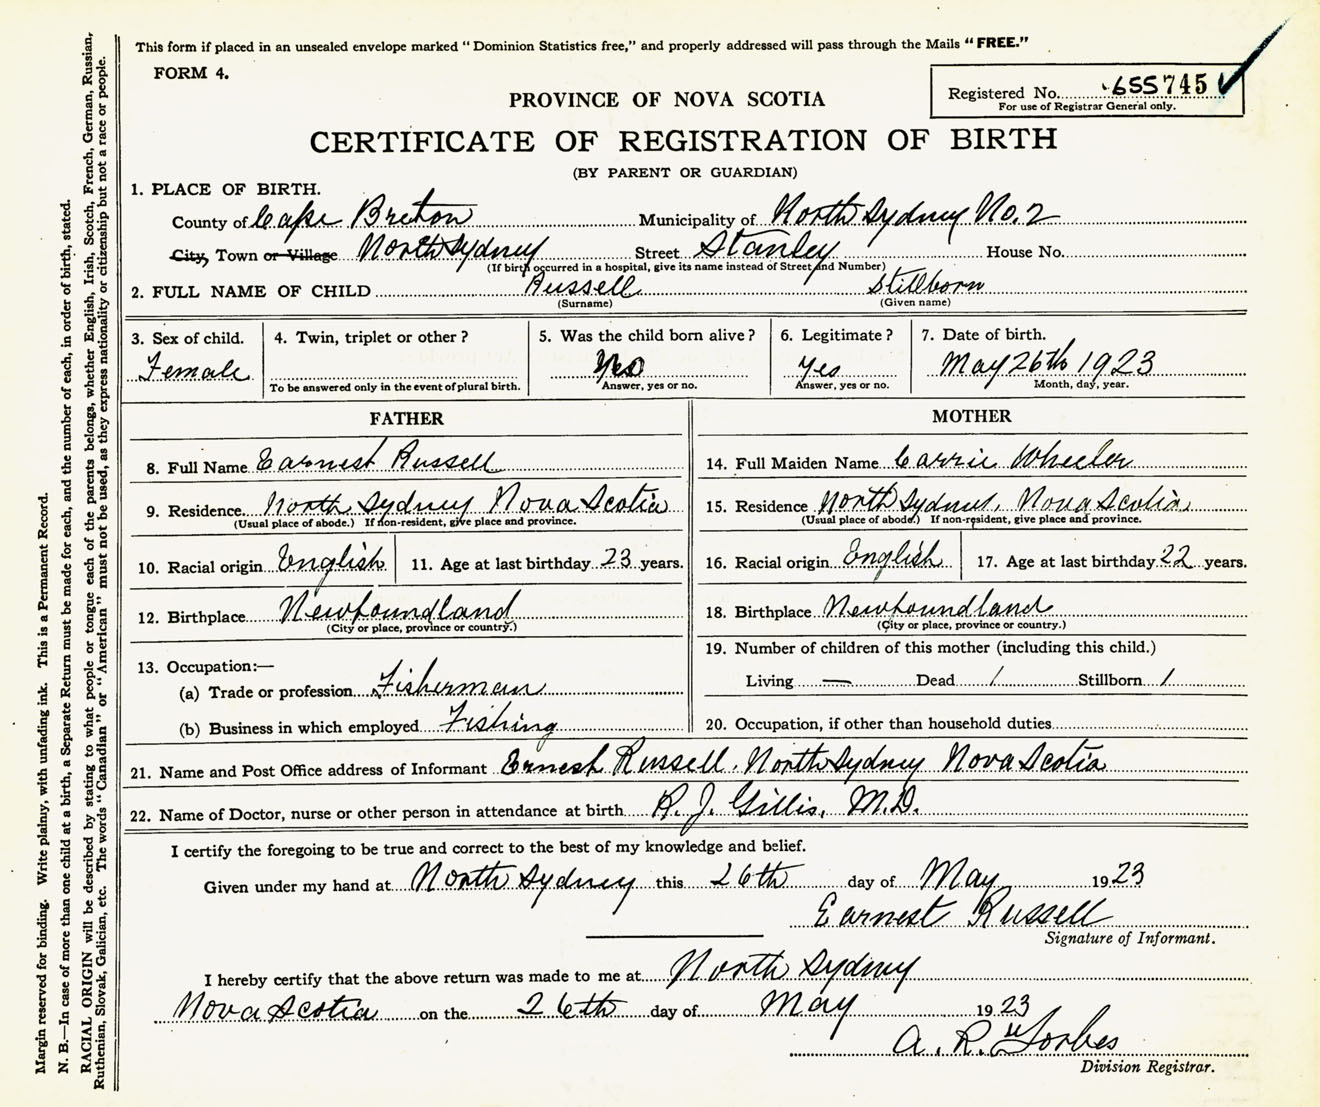 This form if placed in an unsealed envelope marked "Dominion Statistics free," and properly addressed will pass through the Mails "FREE."
FORM 4.
Registered No. 655745
For use of Registrar General only.
PROVINCE OF NOVA SCOTIA
CERTIFICATE OF REGISTRATION OF BIRTH
(BY PARENT OR GUARDIAN)
1. PLACE OF BIRTH.
County of Cape Breton Municipality of North Sydney No. 2
City, Town or Village North Sydney Street Stanley House No.
(If birth occurred in a hospital, give its name instead of Street and Number)
2. FULL NAME OF CHILD Russell Stillborn
(Surname) (Given name)
3. Sex of child. 4. Twin, triplet or other? 5. Was the child born alive? 6. Legitimate? 7. Date of birth.
Female Yes May 26th 1923
To be answered only in the event of plural birth. Answer, yes or no. Answer, yes or no. Month, day, year.
FATHER
8. Full Name Earnest Russell
9. Residence North Sydney Nova Scotia
(Usual place of abode.) If non-resident, give place and province.
10. Racial origin English 11. Age at last birthday 23 years.
12. Birthplace Newfoundland
(City or place, province or country.)
13. Occupation:—
(a) Trade or profession Fisherman
(b) Business in which employed Fishing
MOTHER
14. Full Maiden Name Carrie Wheeler
15. Residence North Sydney, Nova Scotia
(Usual place of abode.) If non-resident, give place and province.
16. Racial origin English 17. Age at last birthday 22 years.
18. Birthplace Newfoundland
(City or place, province or country.)
19. Number of children of this mother (including this child.)
Living — Dead 1 Stillborn 1
20. Occupation, if other than household duties
21. Name and Post Office address of Informant Ernest Russell. North Sydney Nova Scotia
22. Name of Doctor, nurse or other person in attendance at birth R. J. Gillis, M.D.
I certify the foregoing to be true and correct to the best of my knowledge and belief.
Given under my hand at North Sydney this 26th day of May 1923
Earnest Russell
Signature of Informant.
I hereby certify that the above return was made to me at North Sydney
Nova Scotia on the 26th day of May 1923
A. R. Forbes
Division Registrar.
Margin reserved for binding. Write plainly, with unfading ink. This is a Permanent Record.
N. B.—In case of more than one child at a birth, a Separate Return must be made for each, and the number of each, in order of birth, stated.
RACIAL ORIGIN will be described by stating to what people or tongue each of the parents belongs, whether English, Irish, Scotch, French, German, Russian,
Ruthenian, Slovak, Galician, etc. The words "Canadian" or "American" must not be used, as they express nationality or citizenship but not a race or people.